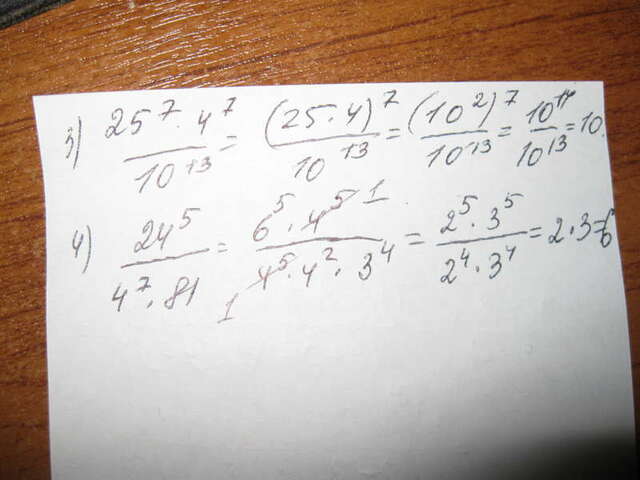 3) 25^7 · 4^7 / 10^13 = (25·4)^7 / 10^13 = (10^2)^7 / 10^13 = 10^14 / 10^13 = 10.
4) 24^5 / 4^7 · 81 = 6^5 · 4^5 1 / 1 4^5 · 4^2 · 3^4 = 2^5 · 3^5 / 2^4 · 3^4 = 2·3=6